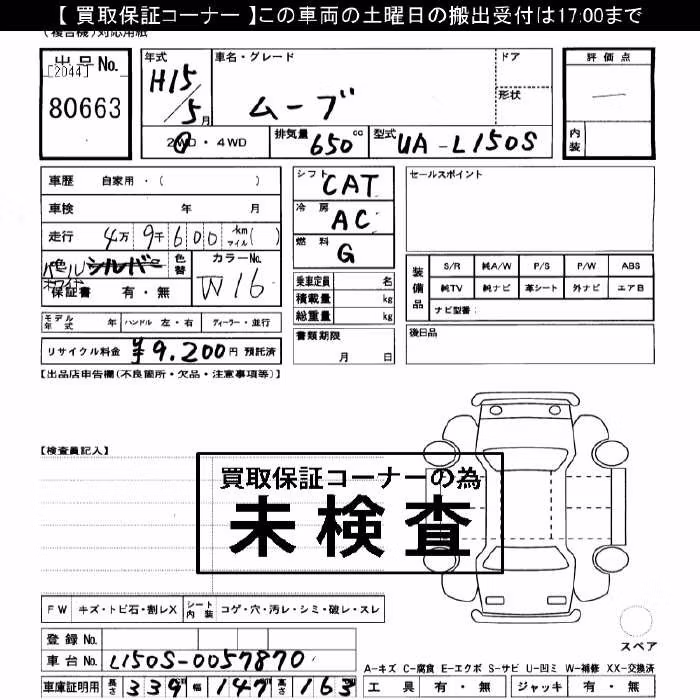 【 買取保証コーナー 】この車両の土曜日の搬出受付は17:00まで
(複合機)対応用紙
出品No.
[2044]
80663
年式 H15/5月
車名・グレード ムーブ
ドア
形状
評価点 —
内装
2WD・4WD
排気量 650 cc
型式 UA-L150S
車歴 自家用・( )
車検 年 月
走行 4万9千600 km マイル( )
色 シルバー パールホワイト 色替
カラーNo. W16
保証書 有・無
シフト CAT
冷房 AC
燃料 G
乗車定員 名
積載量 kg
総重量 kg
書類期限 月 日
セールスポイント
装備品
S/R 純A/W P/S P/W ABS
純TV 純ナビ 革シート 外ナビ エアB
ナビ型番:
後日品
モデル年式 年 ハンドル 左・右 ディーラー・並行
リサイクル料金 ¥9.200円 預託済
【出品店申告欄(不良箇所・欠品・注意事項等)】
【検査員記入】
買取保証コーナーの為
未検査
FW キズ・トビ石・割レX シート内装 コゲ・穴・汚レ・シミ・破レ・スレ
スペア
登録No.
車台No. L150S-0057870
A-キズ C-腐食 E-エクボ S-サビ U-凹ミ W-補修 XX-交換済
車庫証明用 長さ 339 幅 147 高さ 163
工具 有・無 ジャッキ 有・無